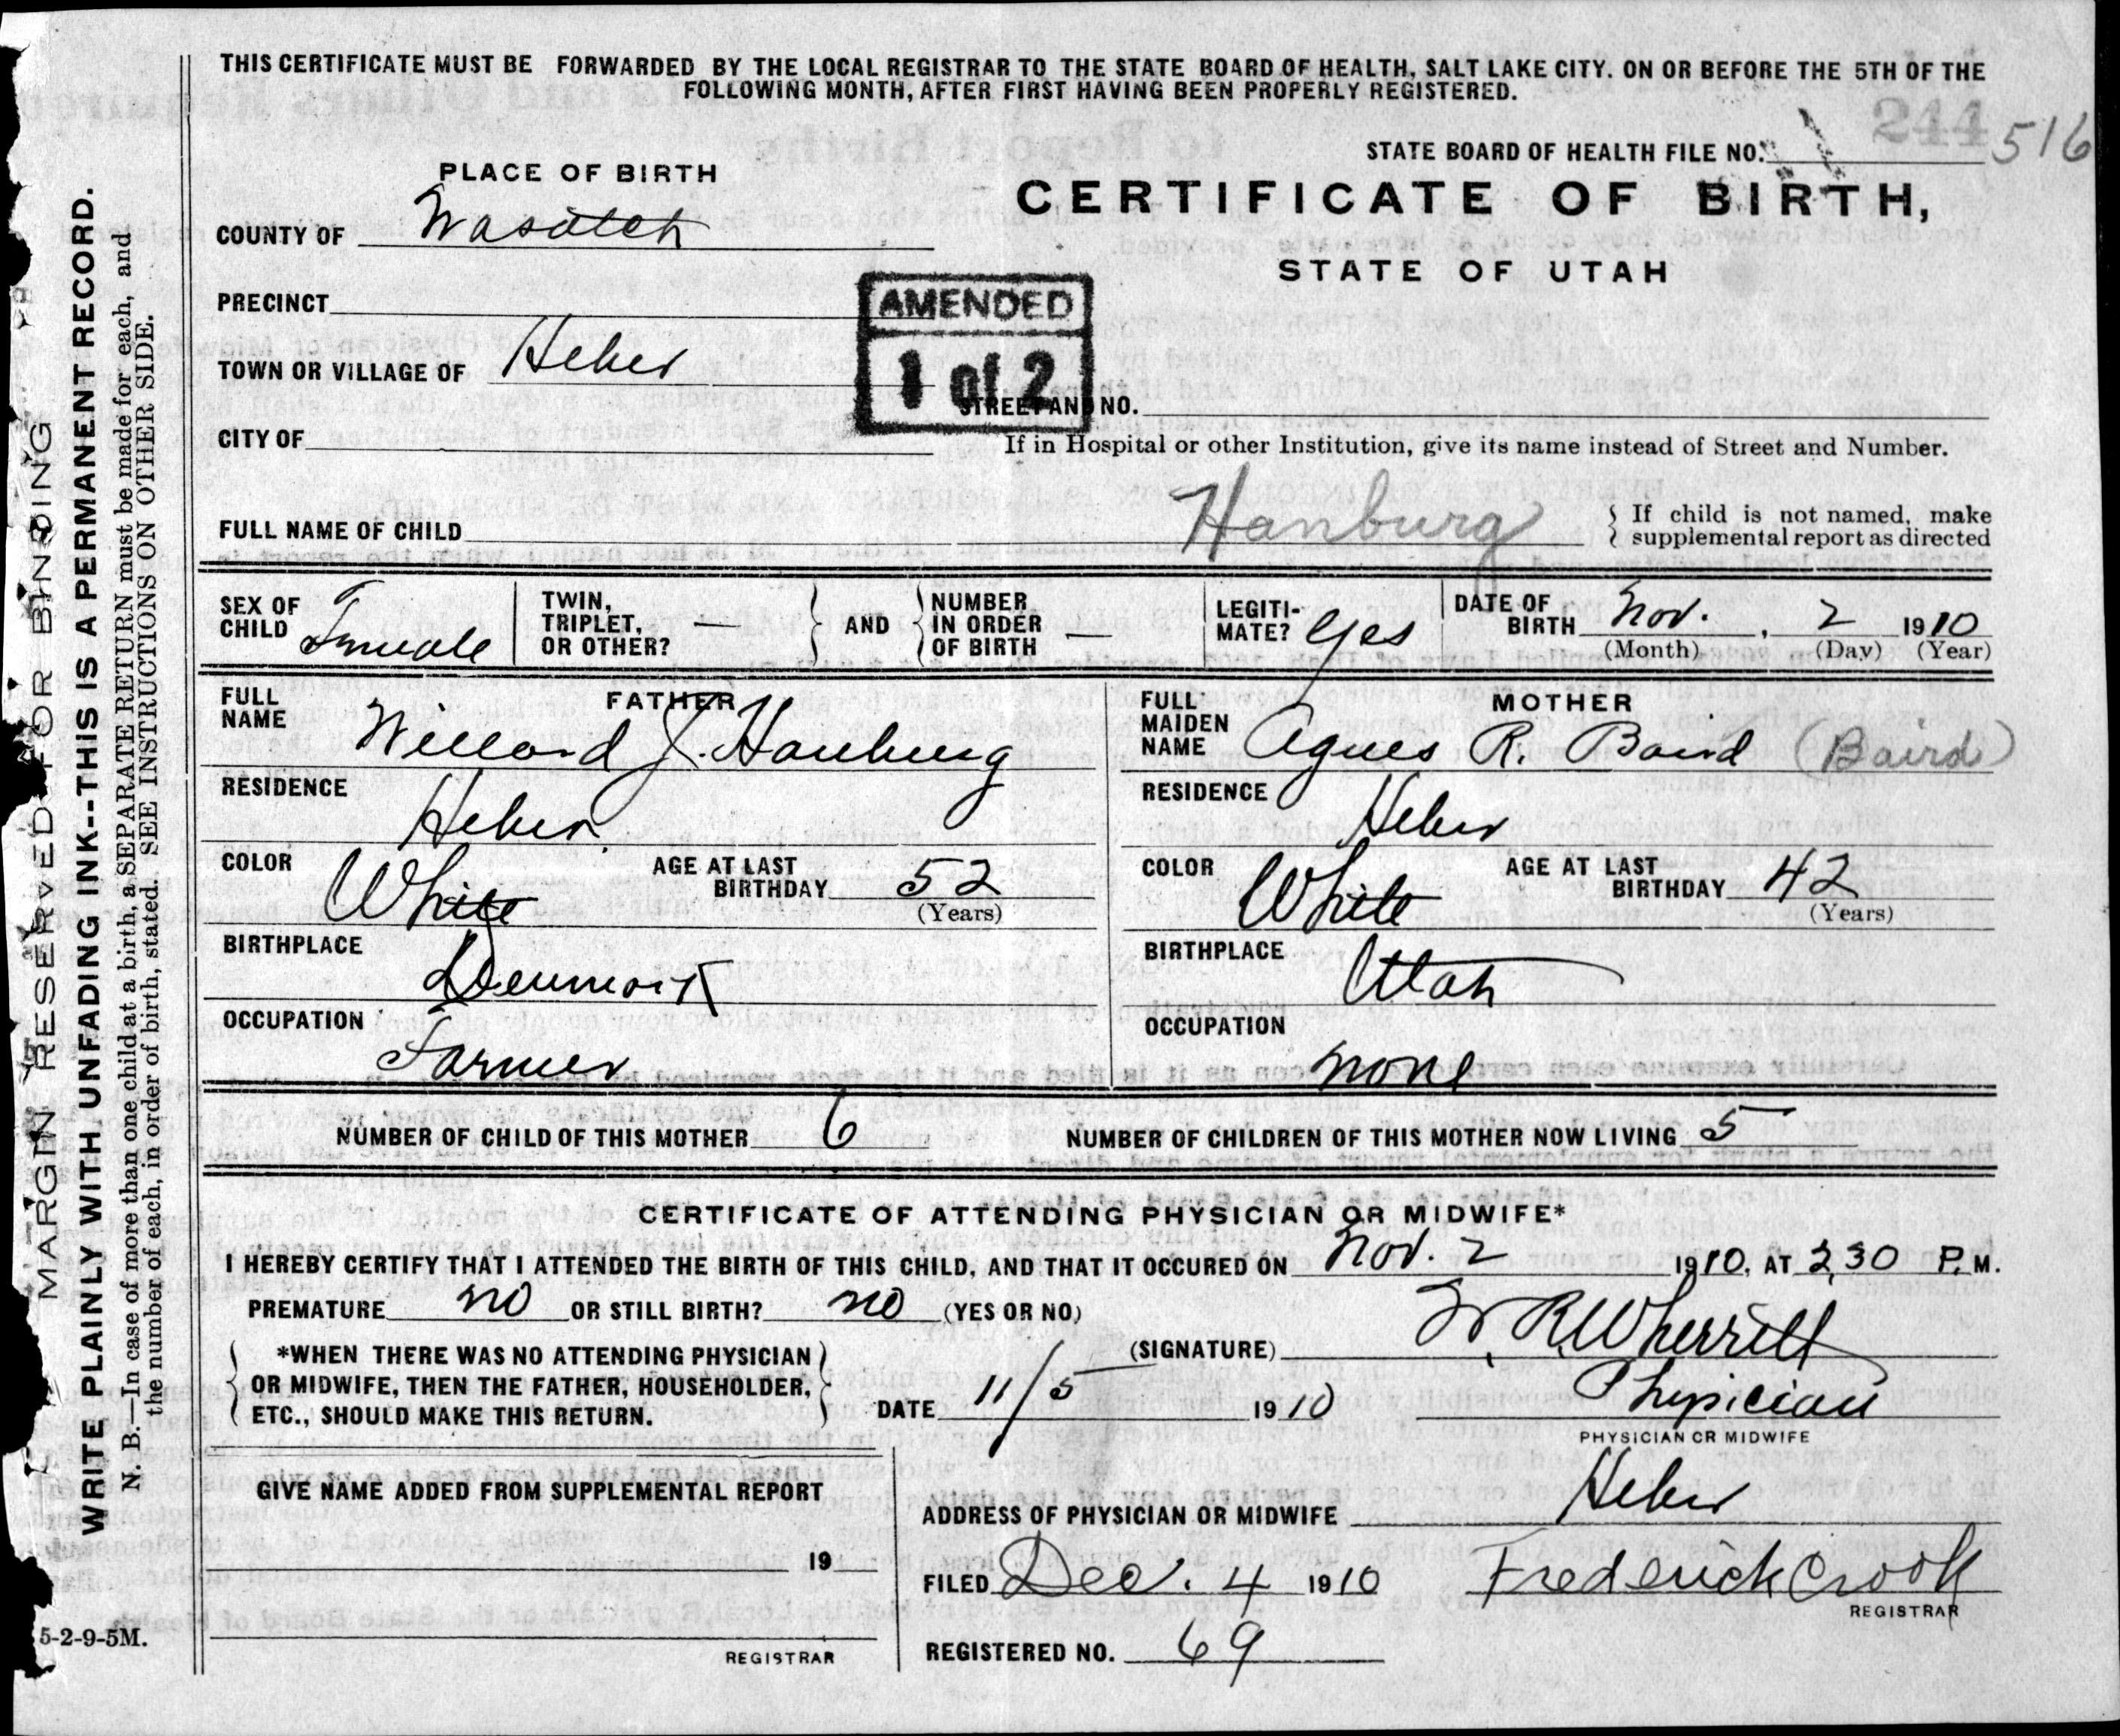 THIS CERTIFICATE MUST BE FORWARDED BY THE LOCAL REGISTRAR TO THE STATE BOARD OF HEALTH, SALT LAKE CITY. ON OR BEFORE THE 5TH OF THE
FOLLOWING MONTH, AFTER FIRST HAVING BEEN PROPERLY REGISTERED.
STATE BOARD OF HEALTH FILE NO. 244 516
PLACE OF BIRTH
CERTIFICATE OF BIRTH,
STATE OF UTAH
COUNTY OF Wasatch
PRECINCT
AMENDED
1 of 2
TOWN OR VILLAGE OF Heber
STREET AND NO.
CITY OF
If in Hospital or other Institution, give its name instead of Street and Number.
FULL NAME OF CHILD Hanburg
If child is not named, make
supplemental report as directed
SEX OF CHILD Female
TWIN, TRIPLET, OR OTHER? —
AND
NUMBER IN ORDER OF BIRTH —
LEGITIMATE? Yes
DATE OF BIRTH Nov. 2 1910
(Month) (Day) (Year)
FATHER
FULL NAME Willard J. Hanburg
RESIDENCE Heber
COLOR White AGE AT LAST BIRTHDAY 52
(Years)
BIRTHPLACE Denmark
OCCUPATION Farmer
MOTHER
FULL MAIDEN NAME Agnes R. Baird (Baird)
RESIDENCE Heber
COLOR White AGE AT LAST BIRTHDAY 42
(Years)
BIRTHPLACE Utah
OCCUPATION none
NUMBER OF CHILD OF THIS MOTHER 6 NUMBER OF CHILDREN OF THIS MOTHER NOW LIVING 5
CERTIFICATE OF ATTENDING PHYSICIAN OR MIDWIFE*
I HEREBY CERTIFY THAT I ATTENDED THE BIRTH OF THIS CHILD, AND THAT IT OCCURED ON Nov. 2 1910, AT 2,30 P. M.
PREMATURE no OR STILL BIRTH? no (YES OR NO)
*WHEN THERE WAS NO ATTENDING PHYSICIAN
OR MIDWIFE, THEN THE FATHER, HOUSEHOLDER,
ETC., SHOULD MAKE THIS RETURN.
(SIGNATURE) W. R. Wherritt
DATE 11/5 1910 Physician
PHYSICIAN OR MIDWIFE
GIVE NAME ADDED FROM SUPPLEMENTAL REPORT
19
REGISTRAR
ADDRESS OF PHYSICIAN OR MIDWIFE Heber
FILED Dec. 4 1910 Frederick Crook
REGISTRAR
REGISTERED NO. 69
MARGIN RESERVED FOR BINDING
WRITE PLAINLY WITH UNFADING INK--THIS IS A PERMANENT RECORD.
N. B.—In case of more than one child at a birth, a SEPARATE RETURN must be made for each, and
the number of each, in order of birth, stated. SEE INSTRUCTIONS ON OTHER SIDE.
5-2-9-5M.